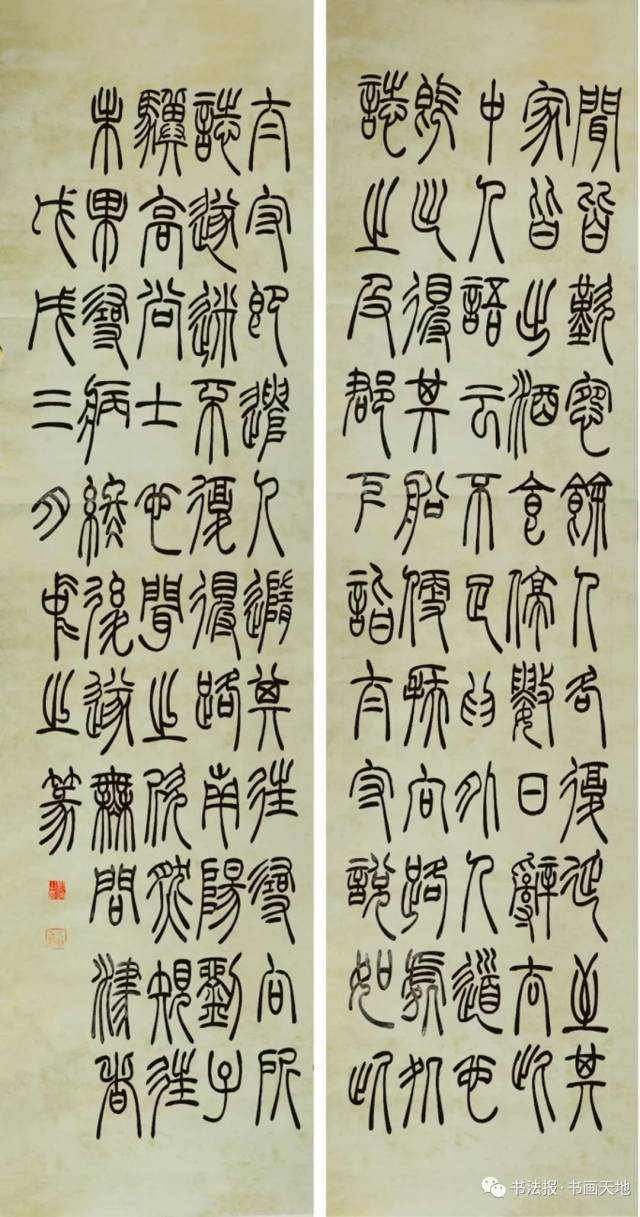 聞皆歎惋餘人各復延至其
家皆出酒食停數日辭去此
中人語云不足為外人道也
既出得其船便扶向路處處
誌之及郡下詣太守說如此
太守即遣人隨其往尋向所
誌遂迷不復得路南陽劉子
驥高尚士也聞之欣然規往
未果尋病終後遂無問津者
戊戌三月之篆
书法报·书画天地